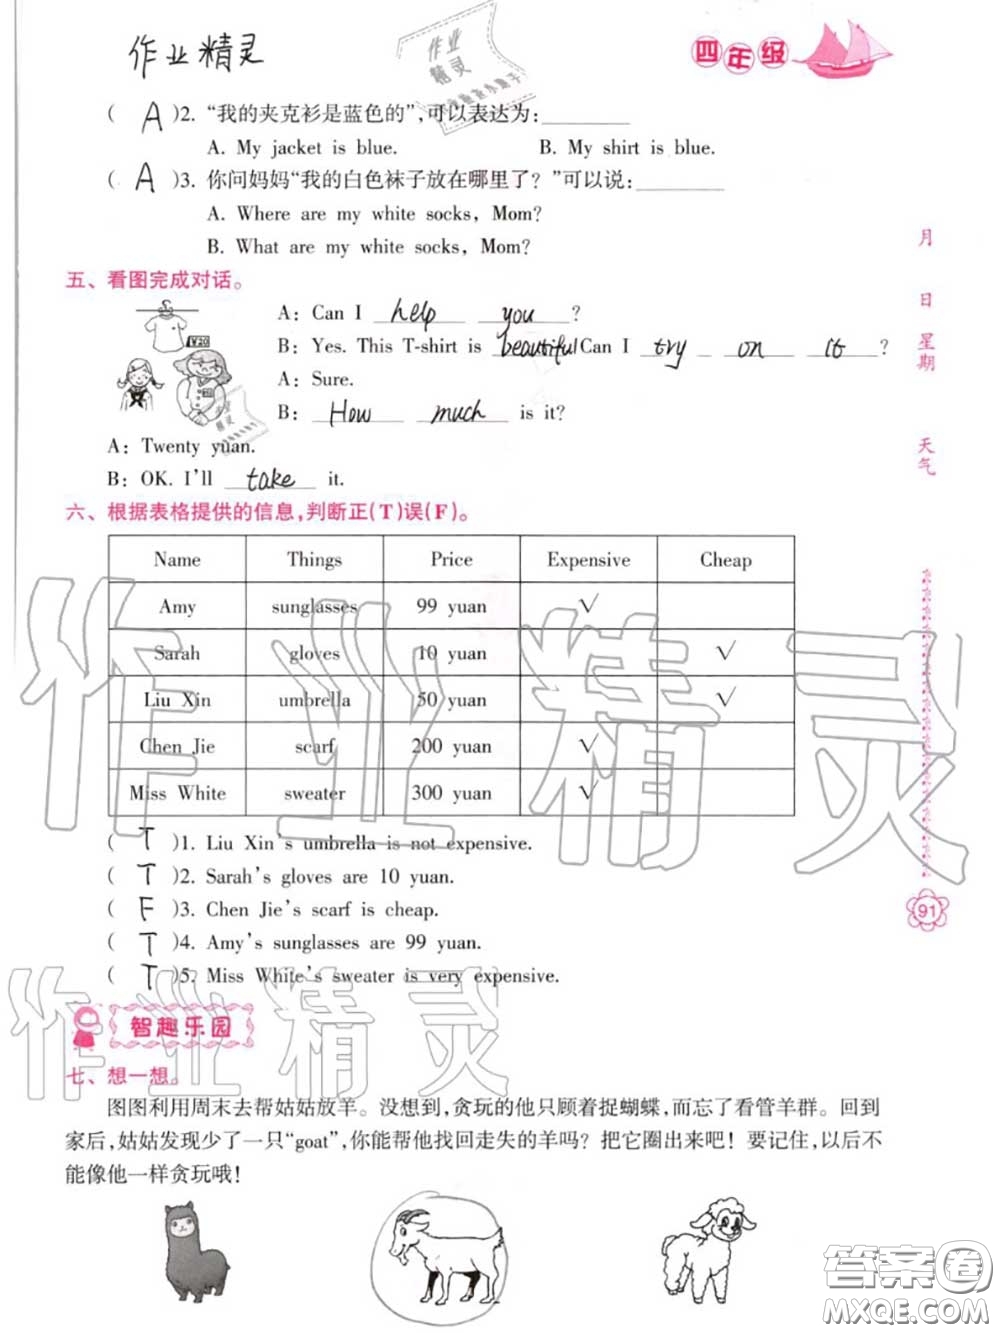 作业精灵
作业
精灵
四年级
( A )2. “我的夹克衫是蓝色的”,可以表达为:________
A. My jacket is blue. B. My shirt is blue.
( A )3. 你问妈妈“我的白色袜子放在哪里了？”可以说:________
A. Where are my white socks, Mom?
B. What are my white socks, Mom?
五、看图完成对话。
¥20
A: Can I help you ?
B: Yes. This T-shirt is beautiful Can I try on it ?
A: Sure.
B: How much is it?
A: Twenty yuan.
B: OK. I'll take it.
六、根据表格提供的信息,判断正(T)误(F)。
Name Things Price Expensive Cheap
Amy sunglasses 99 yuan √
Sarah gloves 10 yuan √
Liu Xin umbrella 50 yuan √
Chen Jie scarf 200 yuan √
Miss White sweater 300 yuan √
( T )1. Liu Xin's umbrella is not expensive.
( T )2. Sarah's gloves are 10 yuan.
( F )3. Chen Jie's scarf is cheap.
( T )4. Amy's sunglasses are 99 yuan.
( T )5. Miss White's sweater is very expensive.
智趣乐园
七、想一想。
图图利用周末去帮姑姑放羊。没想到,贪玩的他只顾着捉蝴蝶,而忘了看管羊群。回到
家后,姑姑发现少了一只“goat”,你能帮他找回走失的羊吗？把它圈出来吧！要记住,以后不
能像他一样贪玩哦！
月
日
星期
天气
91
作业精灵
作业精灵
答案圈
MXQE.COM